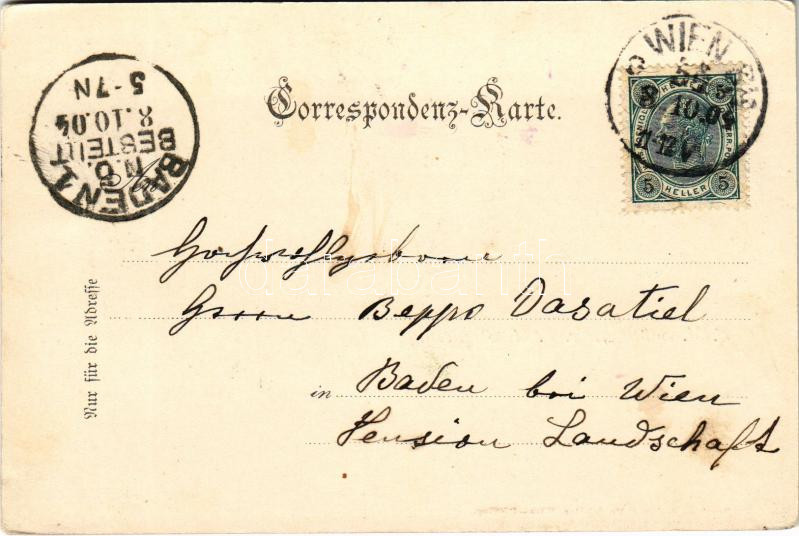 Correspondenz-Karte.
WIEN
8
10.04
11-12V
5 HELLER 5
BADEN 1
N.Ö.
BESTELLT
8.10.04
5-7N
Hochwohlgeboren
Herrn Beppo Dasatiel
in Baden bei Wien
Pension Landschaft
Nur für die Adresse
darabanth